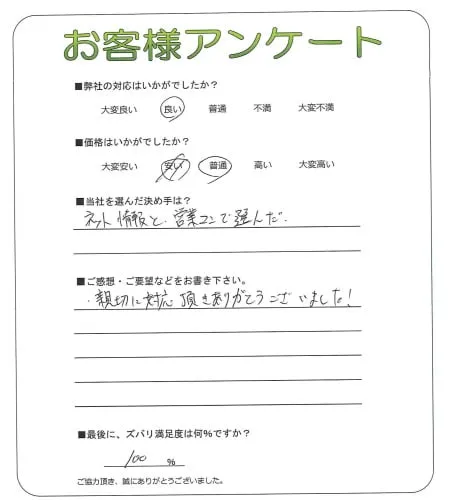 お客様アンケート
■弊社の対応はいかがでしたか?
大変良い 良い 普通 不満 大変不満
■価格はいかがでしたか?
大変安い 安い 普通 高い 大変高い
■当社を選んだ決め手は?
ネット情報と、営業マンで選んだ.
■ご感想・ご要望などをお書き下さい。
・親切に対応頂きありがとうございました!
■最後に、ズバリ満足度は何%ですか?
100 %
ご協力頂き、誠にありがとうございました。